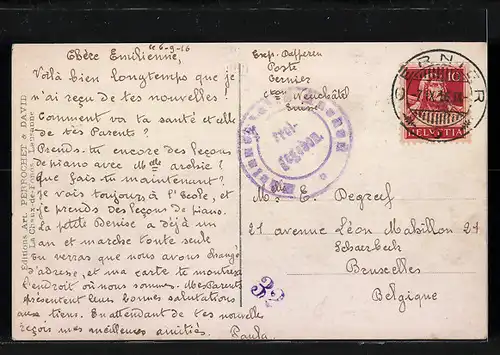 le 6-9-16
Chère Emilienne,
Voilà bien longtemps que je
n'ai reçu de tes nouvelles!
Comment va ta santé et celle
de tes Parents?
Prends-tu encore des leçons
de piano avec Melle
que fais-tu maintenant?
je vais toujours à l'école, et
je prends des leçons de piano.
La petite Denise a déjà un
an et marche toute seule
tu verras que nous avons changé
d'adresse, et ma carte te montrera
l'endroit où nous sommes. Mes Parents
présentent leurs bonnes salutations
aux tiens. En attendant de tes nouvelles
reçois mes meilleures amitiés.
Paula
Editions Art. PERROCHET & DAVID
La Chaux-de-Fonds, Lausanne
Exp.
Poste
Cernier
Cton Neuchâtel
Suisse
CERNIER
10
HELVETIA
Melle E. Degreef
21 avenue Léon Mabillon 21
Schaerbeek
Bruxelles
Belgique